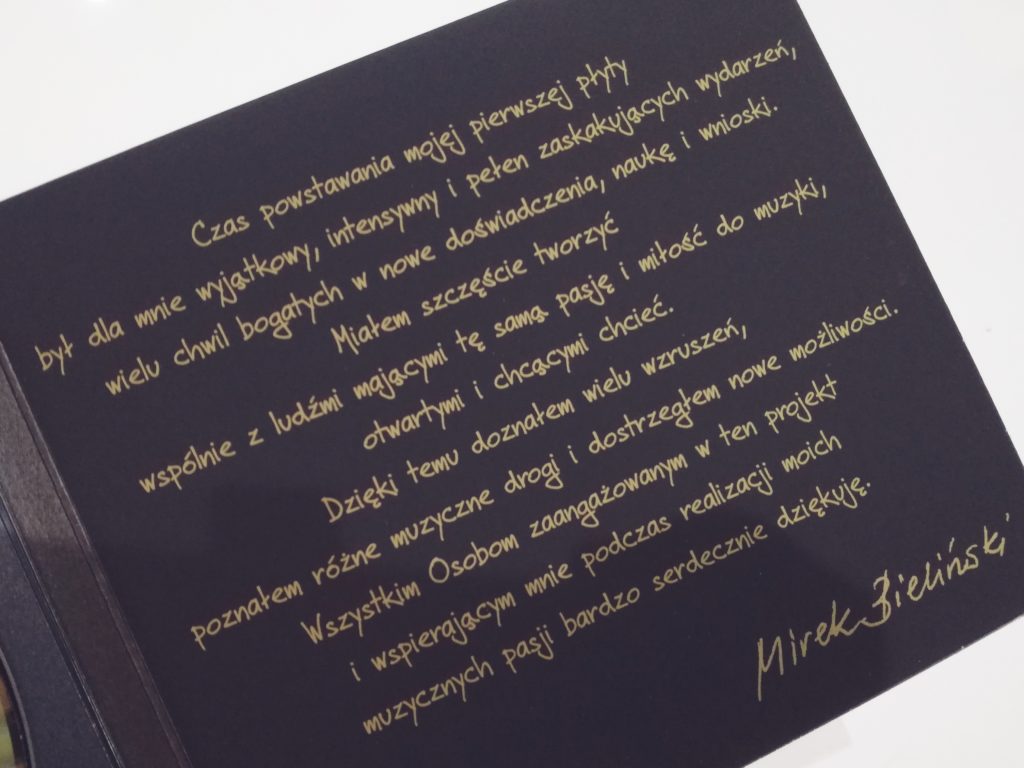 Czas powstawania mojej pierwszej płyty
był dla mnie wyjątkowy, intensywny i pełen zaskakujących wydarzeń,
wielu chwil bogatych w nowe doświadczenia, naukę i wnioski.
Miałem szczęście tworzyć
wspólnie z ludźmi mającymi tę samą pasję i miłość do muzyki,
otwartymi i chcącymi chcieć.
Dzięki temu doznałem wielu wzruszeń,
poznałem różne muzyczne drogi i dostrzegłem nowe możliwości.
Wszystkim Osobom zaangażowanym w ten projekt
i wspierającym mnie podczas realizacji moich
muzycznych pasji bardzo serdecznie dziękuję.
Mirek Bieliński